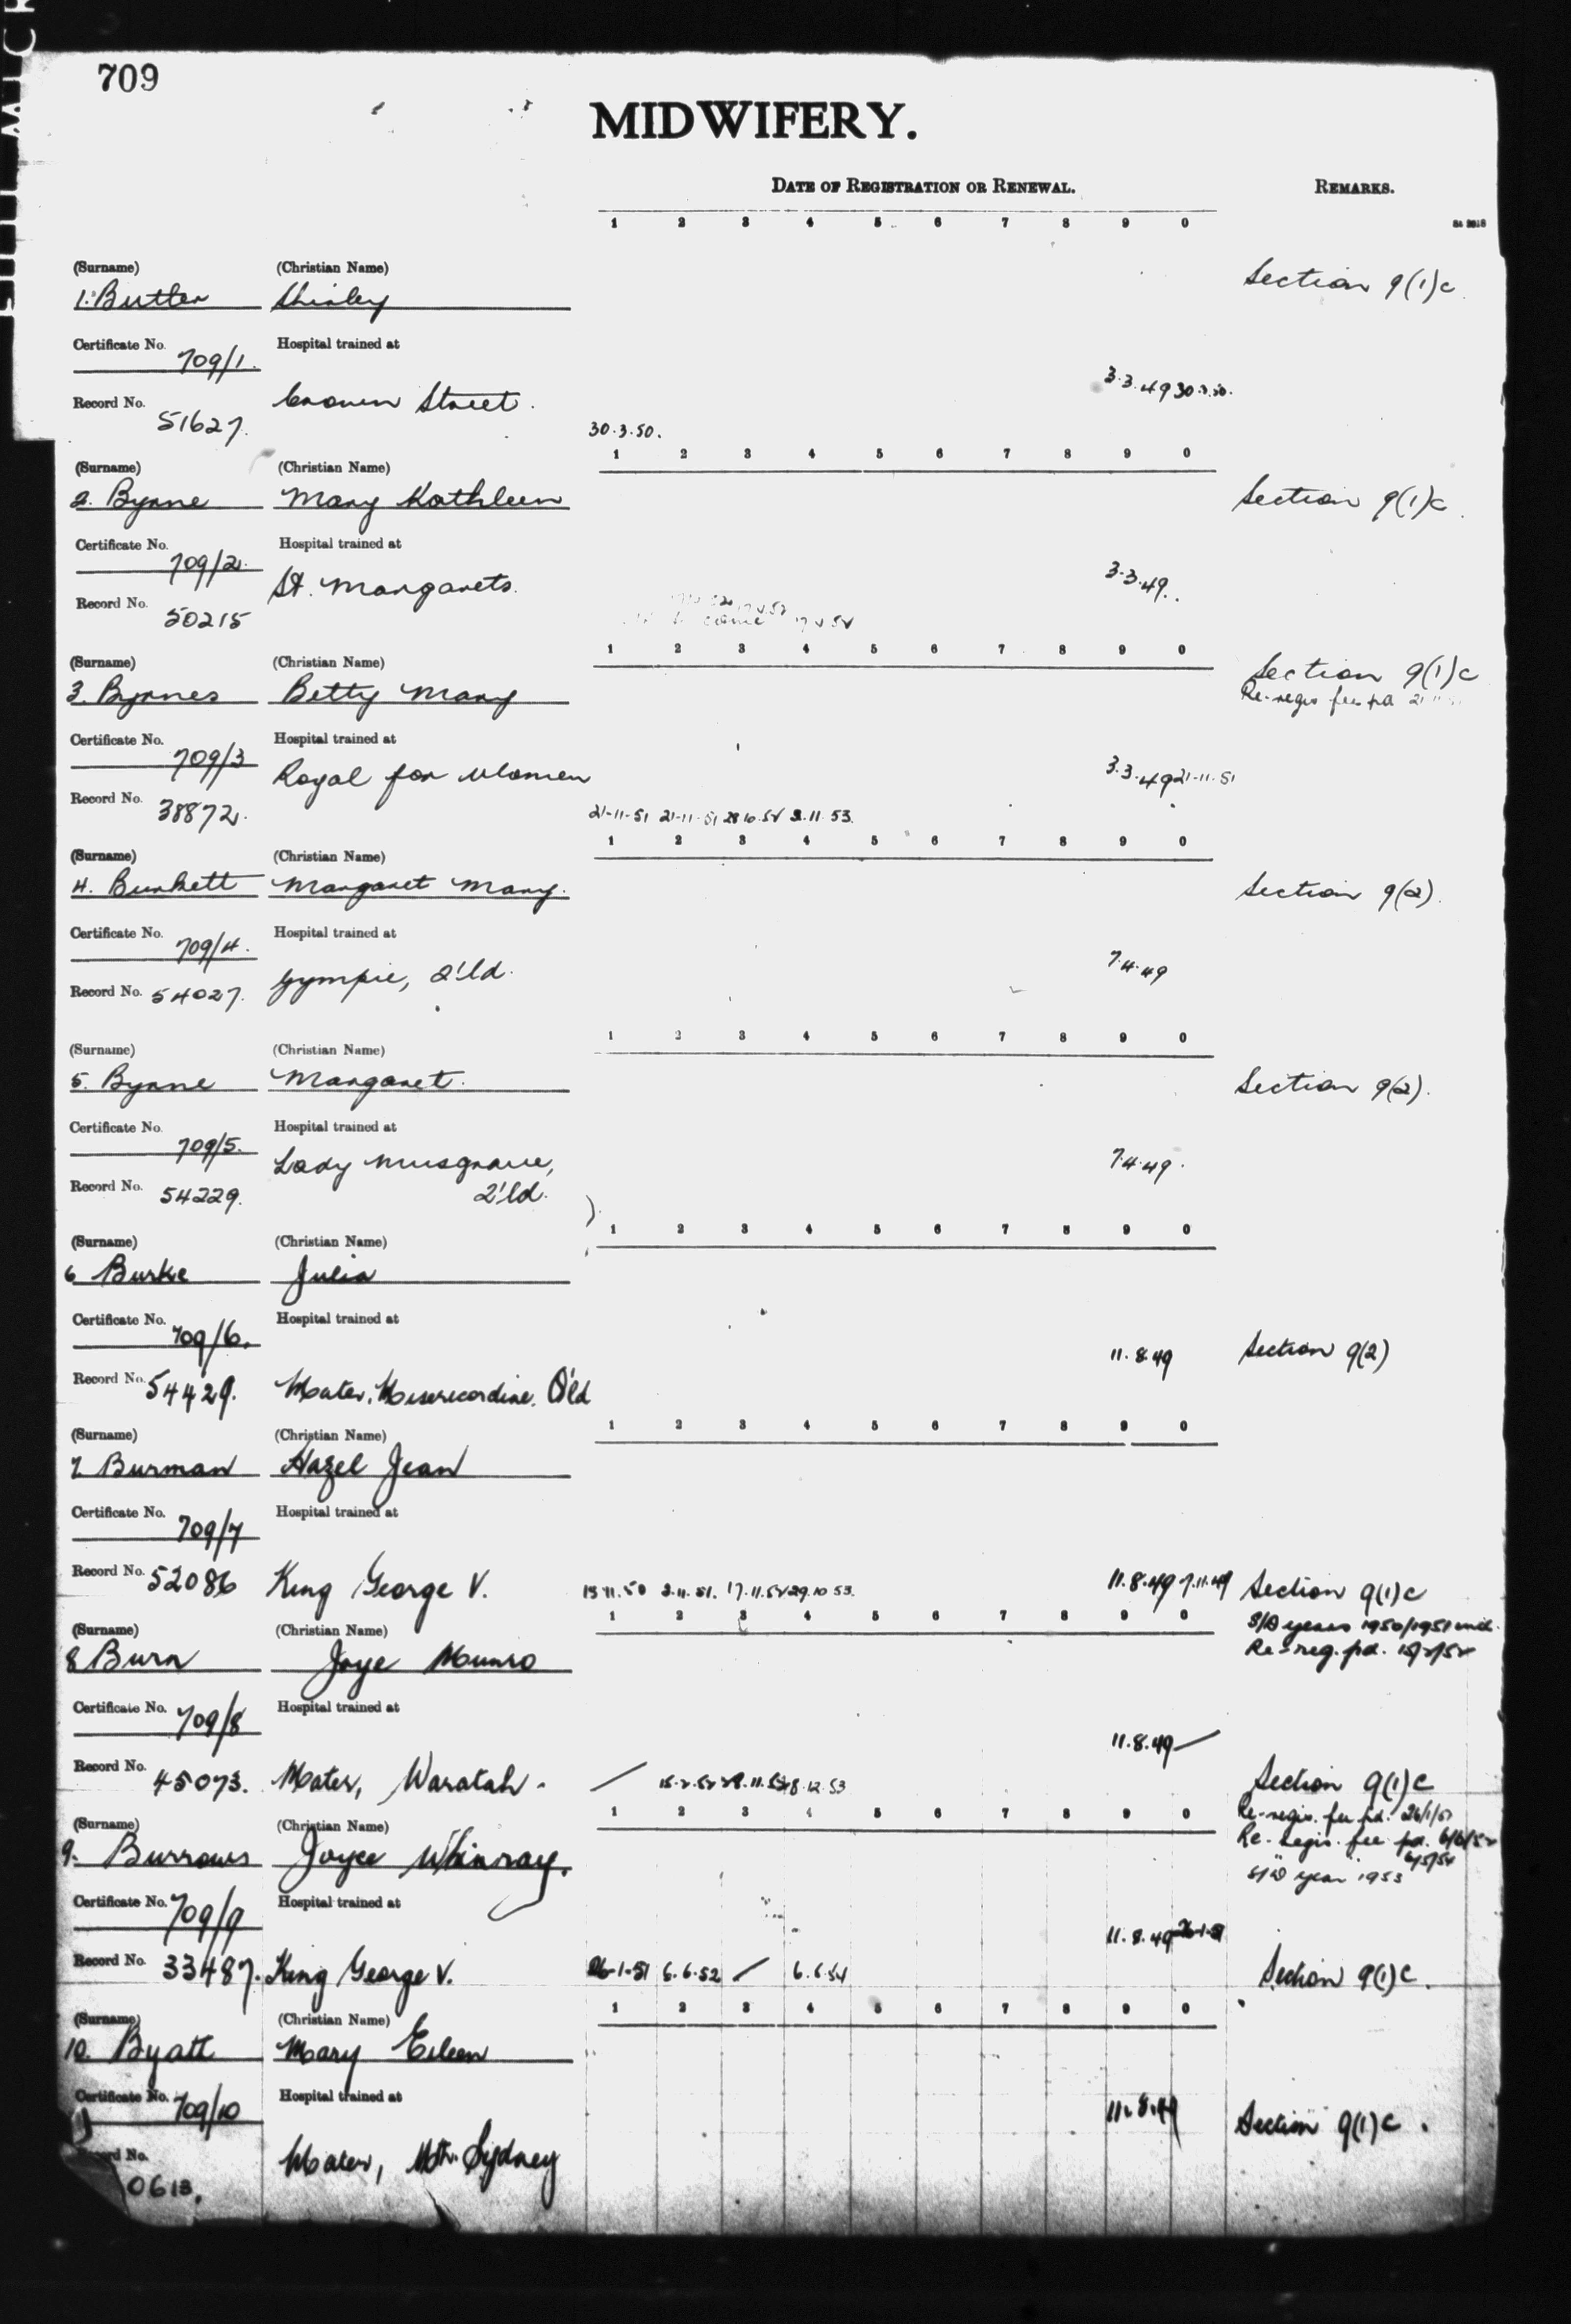 709
MIDWIFERY.
DATE OF REGISTRATION OR RENEWAL. REMARKS.
1 2 3 4 5 6 7 8 9 0
(Surname) (Christian Name)
1. Butler Shirley Section 9(1)c
Certificate No. 709/1. Hospital trained at
3.3.49 30.3.50.
Record No. 51627. Crown Street.
30.3.50.
1 2 3 4 5 6 7 8 9 0
(Surname) (Christian Name)
2. Byrne Mary Kathleen Section 9(1)c
Certificate No. 709/2. Hospital trained at
St. Margarets. 3.3.49.
Record No. 50215
1 2 3 4 5 6 7 8 9 0
(Surname) (Christian Name) Section 9(1)c
3. Byrnes Betty Mary Re-regis fees pd 21
Certificate No. 709/3 Hospital trained at
Royal for Women 3.3.49 21-11-51
Record No. 38872.
21-11-51 21-11-51 28 10.52 3.11.53.
1 2 3 4 5 6 7 8 9 0
(Surname) (Christian Name)
4. Burkett Margaret Mary. Section 9(2).
Certificate No. 709/4. Hospital trained at
Gympie, Q'ld. 7.4.49
Record No. 54027.
1 2 3 4 5 6 7 8 9 0
(Surname) (Christian Name)
5. Byrne Margaret. Section 9(2).
Certificate No. 709/5. Hospital trained at
Lady Musgrave, 7.4.49.
Record No. 54229. Q'ld.
1 2 3 4 5 6 7 8 9 0
(Surname) (Christian Name)
6 Burke Julia
Certificate No. 709/6. Hospital trained at
11.8.49 Section 9(2)
Record No. 54429. Mater, Misericordiae. Q'ld
1 2 3 4 5 6 7 8 9 0
(Surname) (Christian Name)
7. Burman Hazel Jean
Certificate No. 709/7 Hospital trained at
Record No. 52086 King George V. 13.11.50 2.11.51. 17.11.52 29.10.53. 11.8.49 7.11.49 Section 9(1)c
1 2 3 4 5 6 7 8 9 0
(Surname) (Christian Name) S/D years 1950/1951 incl.
8 Burn Joye Munro Re-reg. pd. 15/2/52
Certificate No. 709/8 Hospital trained at
11.8.49 —
Record No. 45073. Mater, Waratah. / 15.2.52 28.11.52 8.12.53 Section 9(1)c
1 2 3 4 5 6 7 8 9 0 Re-regis. fee pd. 26/1/51
(Surname) (Christian Name) Re-regis. fee pd. 6/6/52
9. Burrows Joyce Whinray. 6/5/54
S/D year 1953
Certificate No. 709/9 Hospital trained at
11.8.49 26-1-51
Record No. 33487. King George V. 26-1-51 6.6.52 / 6.6.54 Section 9(1)c.
1 2 3 4 5 6 7 8 9 0
(Surname) (Christian Name)
10. Byatt Mary Eileen
Certificate No. 709/10 Hospital trained at
11.8.49 Section 9(1)c.
Mater, Nth. Sydney
0613.